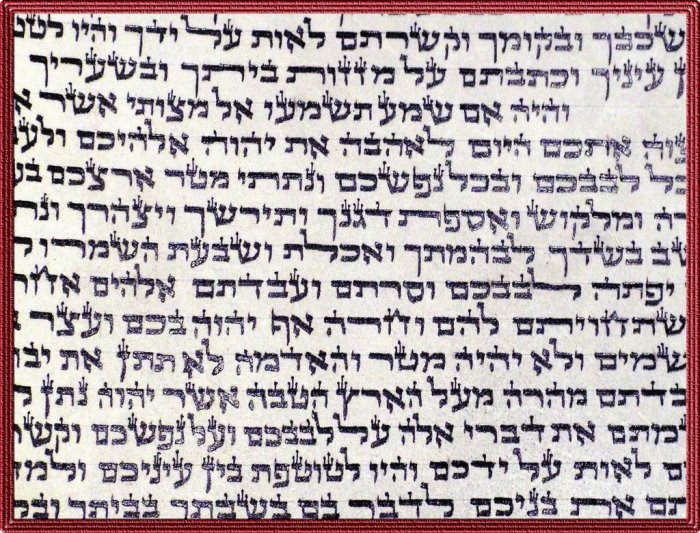 שכבך ובקומך וקשרתם לאות על ידך והיו לטט
עיניך וכתבתם על מזזות ביתך ובשעריך
והיה אם שמע תשמעו אל מצותי אשר א
צוה אתכם היום לאהבה את יהוה אלהיכם ולע
כל לבבכם ובכל נפשכם ונתתי מטר ארצכם בע
רה ומלקוש ואספת דגנך ותירשך ויצהרך ונת
שב בשדך לבהמתך ואכלת ושבעת השמרו ל
יפתה לבבכם וסרתם ועבדתם אלהים אחר
שתחויתם להם וחרה אף יהוה בכם ועצר
שמים ולא יהיה מטר והאדמה לא תתן את יבו
בדתם מהרה מעל הארץ הטבה אשר יהוה נתן ל
שמתם את דברי אלה על לבבכם ועל נפשכם וקשר
ם לאות על ידכם והיו לטוטפת בין עיניכם ולמד
תם את בניכם לדבר בם בשבתך בביתך ובל